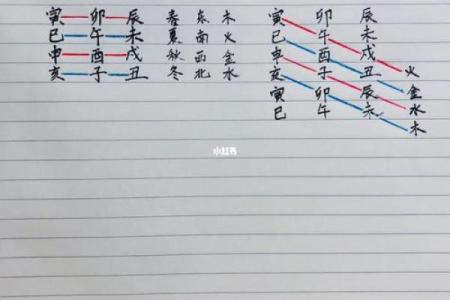 寅 卯 辰 春 东 木
巳 午 未 夏 南 火
申 酉 戌 秋 西 金
亥 子 丑 冬 北 水
寅 卯 辰
巳 午 未
申 酉 戌
亥 子 丑 火
寅 卯 辰 金
巳 午 未 水
木
小红书